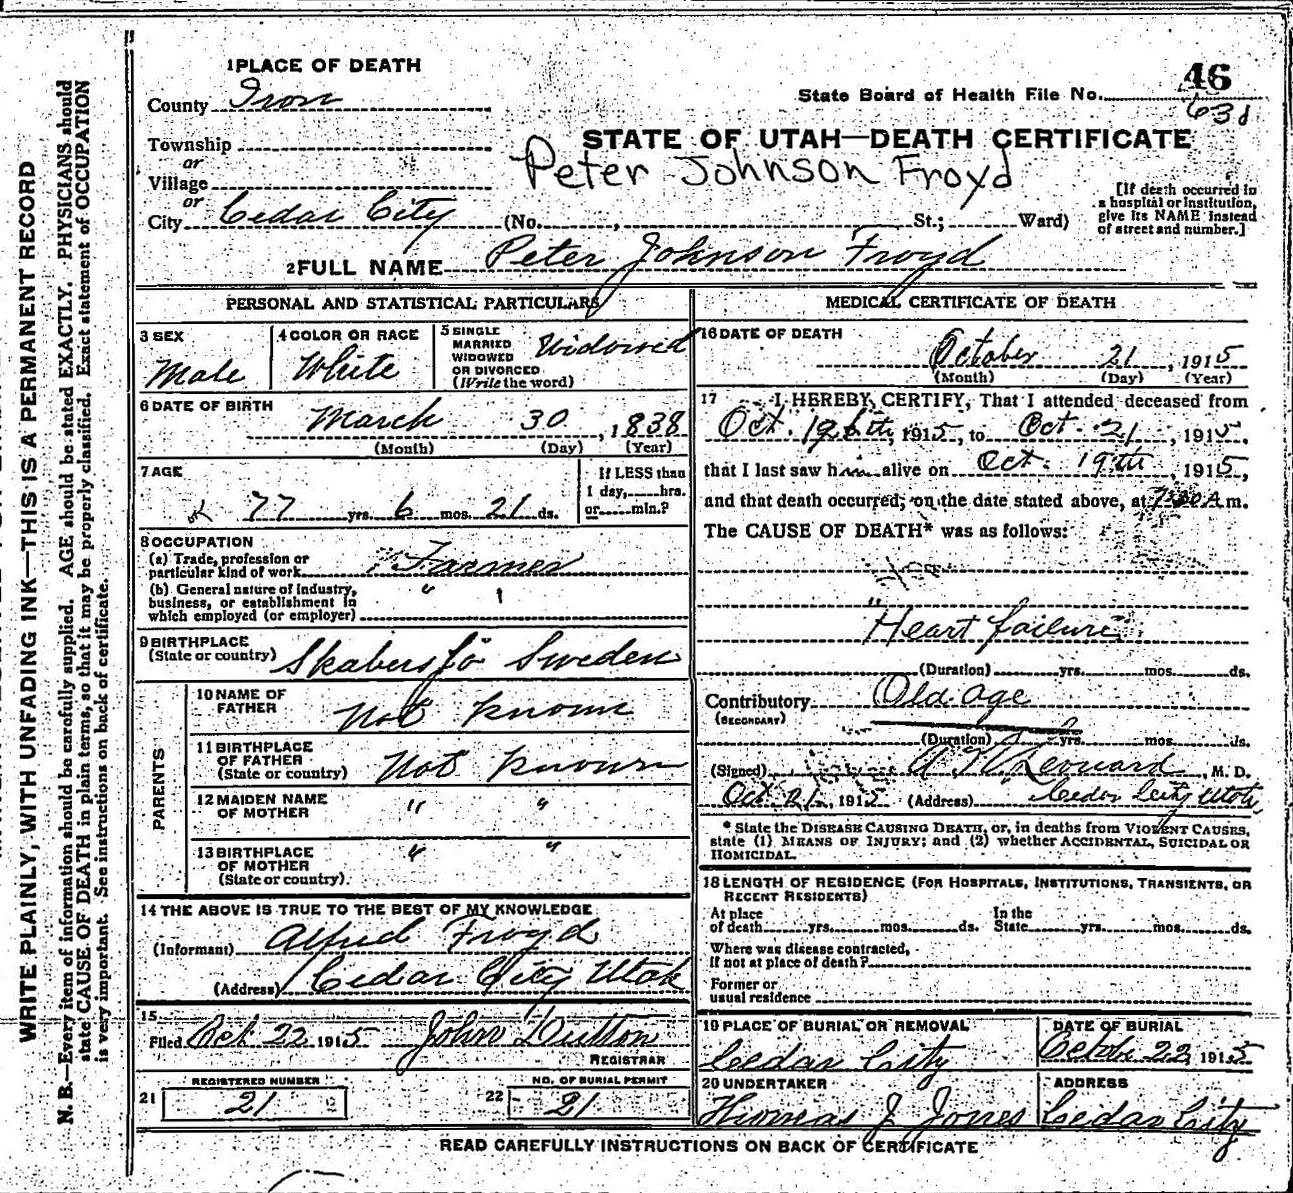 WRITE PLAINLY, WITH UNFADING INK—THIS IS A PERMANENT RECORD
N. B.—Every item of information should be carefully supplied. AGE should be stated EXACTLY. PHYSICIANS should
state CAUSE OF DEATH in plain terms, so that it may be properly classified. Exact statement of OCCUPATION
is very important. See instructions on back of certificate.
1 PLACE OF DEATH
County Iron
Township
or
Village
or
City Cedar City (No. , St.; Ward)
46
State Board of Health File No.
631
STATE OF UTAH—DEATH CERTIFICATE
Peter Johnson Froyd
[If death occurred in
a hospital or institution,
give its NAME instead
of street and number.]
2 FULL NAME Peter Johnson Froyd
PERSONAL AND STATISTICAL PARTICULARS
3 SEX
Male
4 COLOR OR RACE
White
5 SINGLE
MARRIED
WIDOWED
OR DIVORCED
(Write the word)
Widowed
6 DATE OF BIRTH
March 30, 1838
(Month) (Day) (Year)
7 AGE
77 yrs. 6 mos. 21 ds.
If LESS than
1 day, hrs.
or min.?
8 OCCUPATION
(a) Trade, profession or
particular kind of work Farmer
(b) General nature of industry,
business, or establishment in
which employed (or employer)
"
9 BIRTHPLACE
(State or country) Skabersjö Sweden
PARENTS
10 NAME OF
FATHER Not known
11 BIRTHPLACE
OF FATHER
(State or country) Not known
12 MAIDEN NAME
OF MOTHER " "
13 BIRTHPLACE
OF MOTHER
(State or country). " "
14 THE ABOVE IS TRUE TO THE BEST OF MY KNOWLEDGE
(Informant) Alfred Froyd
(Address) Cedar City Utah
15
Filed Oct 22 1915 John Dutton
REGISTRAR
REGISTERED NUMBER
21 21
NO. OF BURIAL PERMIT
22 21
MEDICAL CERTIFICATE OF DEATH
16 DATE OF DEATH
October 21, 1915
(Month) (Day) (Year)
17 I HEREBY CERTIFY, That I attended deceased from
Oct. 1915, to Oct. 21, 1915,
that I last saw him alive on Oct. 19th, 1915,
and that death occurred, on the date stated above, at A m.
The CAUSE OF DEATH* was as follows:
Heart failure
(Duration) yrs. mos. ds.
Contributory Old age
(SECONDARY)
(Duration) yrs. mos. ds.
(Signed) Leonard, M. D.
Oct 21, 1915 (Address) Cedar City Utah
* State the DISEASE CAUSING DEATH, or, in deaths from VIOLENT CAUSES,
state (1) MEANS OF INJURY; and (2) whether ACCIDENTAL, SUICIDAL OR
HOMICIDAL.
18 LENGTH OF RESIDENCE (FOR HOSPITALS, INSTITUTIONS, TRANSIENTS, OR
RECENT RESIDENTS)
At place
of death yrs. mos. ds.
In the
State yrs. mos. ds.
Where was disease contracted,
If not at place of death?
Former or
usual residence
19 PLACE OF BURIAL OR REMOVAL
Cedar City
DATE OF BURIAL
22 1915
20 UNDERTAKER
Thomas J Jones
ADDRESS
Cedar City
READ CAREFULLY INSTRUCTIONS ON BACK OF CERTIFICATE